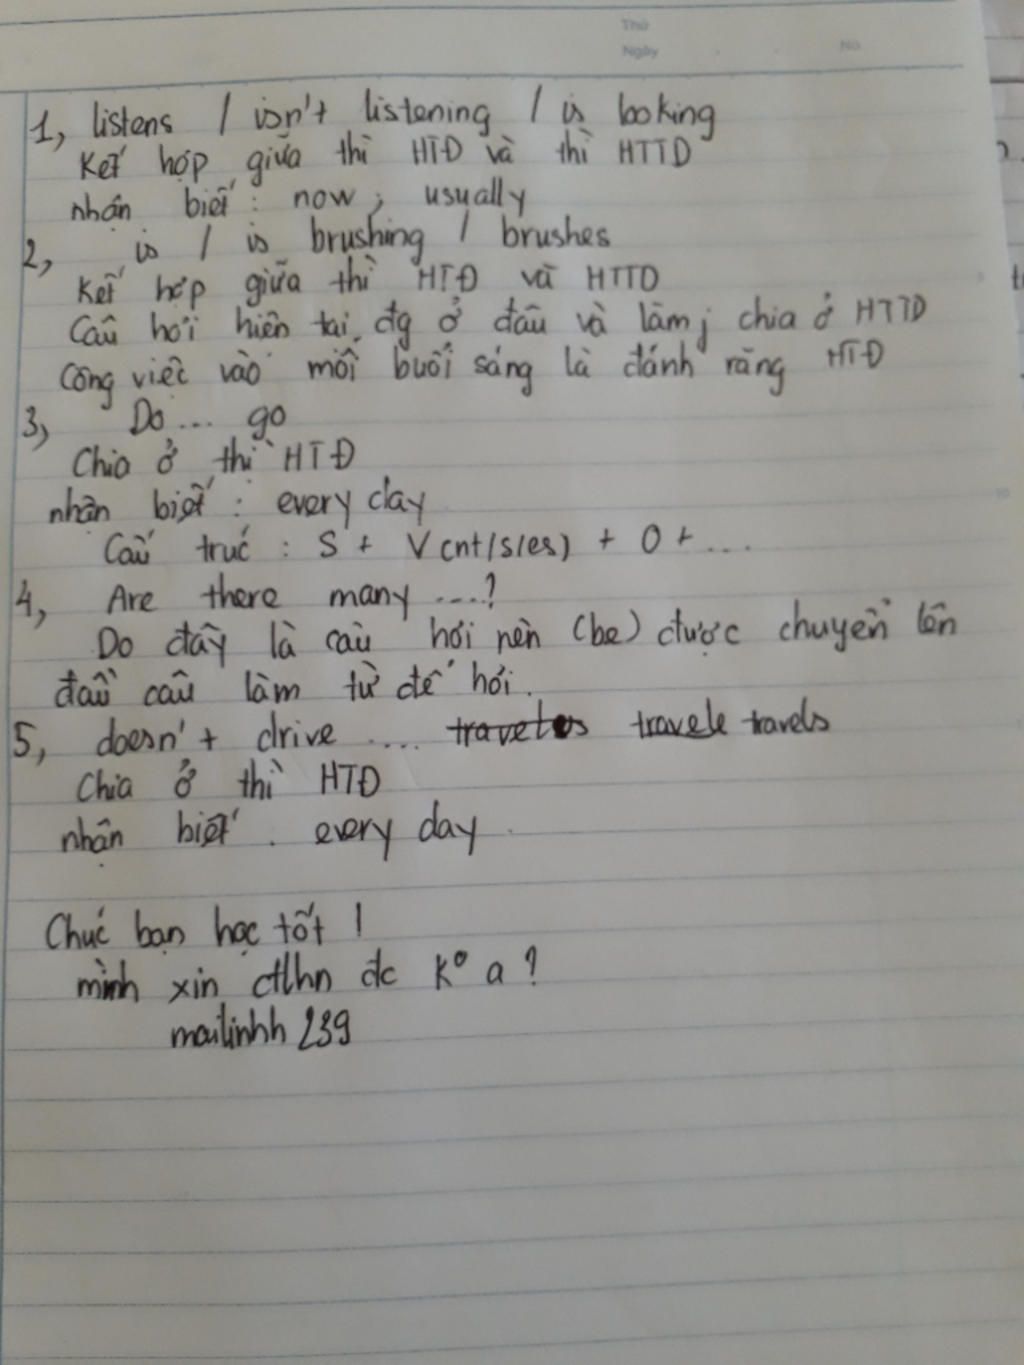 Thứ
Ngày
No
1, listens / isn't listening / is looking
Kết hợp giữa thì HTĐ và thì HTTD
nhận biết : now ; usually
2, is / is brushing / brushes
Kết hợp giữa thì HTĐ và HTTD
Câu hỏi hiện tại đg ở đâu và làm j chia ở HTTD
Công việc vào mỗi buổi sáng là đánh răng HTĐ
3, Do ... go
Chia ở thì HTĐ
nhận biết : every day
Cấu trúc : S + V(nt/s/es) + O + ...
4, Are there many ....?
Do đây là câu hỏi nên (be) được chuyển lên
đầu câu làm từ để hỏi.
5, doesn't drive .... travels
Chia ở thì HTĐ
nhận biết : every day
Chúc bạn học tốt !
mình xin ctlhn đc k° ạ ?
mailinhh 239